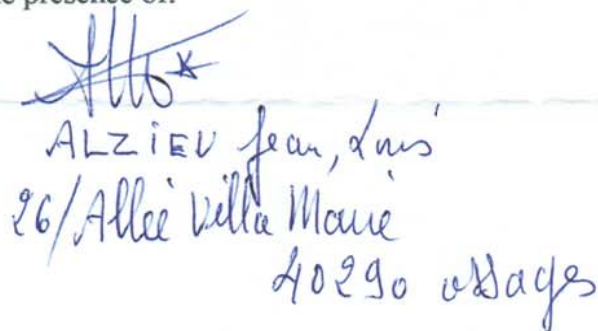 presence of:
ALZIEU Jean, Louis
26/Allée Villa Marie
40290 ossages